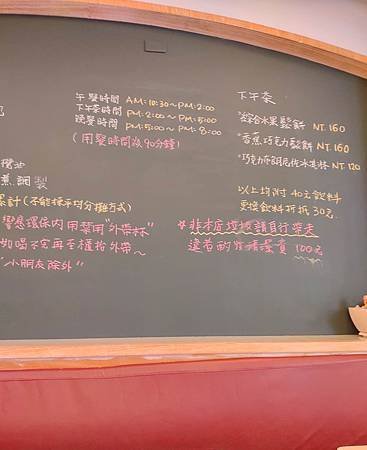 午餐時間 AM:10:30~PM:2:00
下午茶時間 PM:2:00~PM:5:00
晚餐時間 PM:5:00~PM:8:00
(用餐時間為90分鐘)
煎銅製
累計(不能採平均分攤方式)
響應環保內用禁用"外帶杯"
如喝不完再至櫃抬外帶~
"小朋友除外"
下午茶
*綜合水果鬆餅 NT.160
*香蕉巧克力鬆餅 NT.160
*巧克力布朗尼佐冰淇淋 NT.120
以上均附40元飲料
更換飲料折抵30元.
*非本店垃圾請自行帶走
違者酌收清潔費 100元